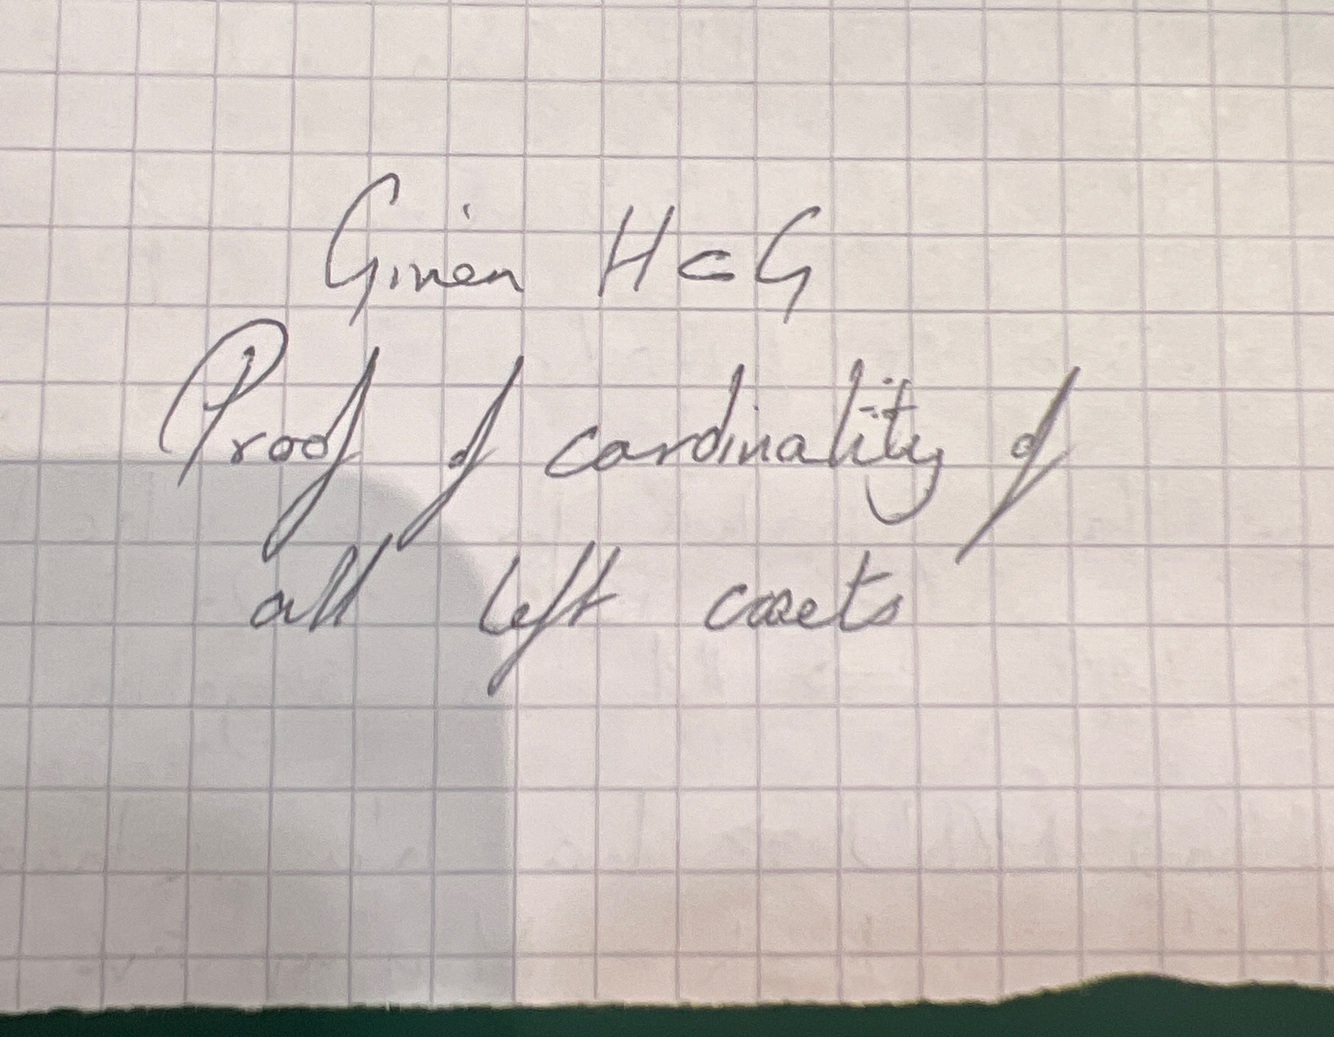 Given H ⊂ G
Proof of cardinality of
all left cosets